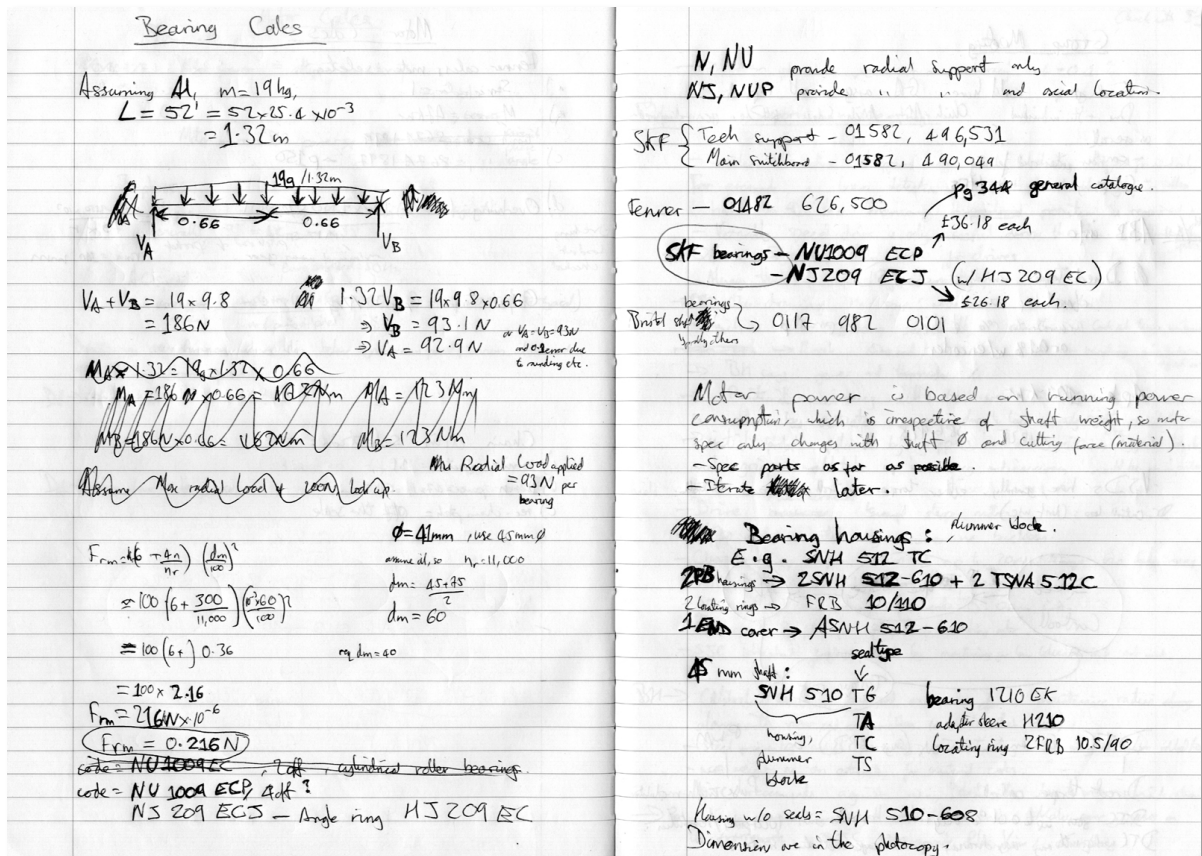 Bearing Calcs
Assuming Al, m=19kg,
L = 52' = 52×25.4 ×10⁻³
= 1.32m
19g/1.32m
0.66 0.66
V_A V_B
V_A + V_B = 19×9.8
= 186N
1.32V_B = 19×9.8×0.66
⇒ V_B = 93.1N
⇒ V_A = 92.9N
or V_A=V_B=93N
and 0.1 error due
to rounding etc.
M_A × 1.32 = 19g×1.32 × 0.66
M_A = 186N × 0.66 = 123Nm M_A = 123Nm
M_B = 186N×0.66 = 123Nm M_B = 123Nm
Radial Load applied
= 93N per
bearing
Assume Max radial load of 200N lock up.
Ø = 41mm, use 45mm Ø
F_rm = (6 + 4n/n_r) (dm/100)²
assume oil, so n_r = 11,000
dm = 45+75/2
dm = 60
= 100 (6 + 300/11,000) (60/100)²
= 100 (6+ ) 0.36
req dm = 40
= 100 × 2.16
F_rm = 216N×10⁻⁶
F_rm = 0.216N
code = NU1009EC, 2off, cylindrical roller bearings.
code = NU 1009 ECP, 4off?
NJ 209 ECJ – Angle ring HJ 209 EC
N, NU provide radial support only
NJ, NUP provide " " and axial location.
SKF { Tech support – 01582, 496,531
Main switchboard – 01582, 490,049
pg 344 general catalogue.
Jenner – 01482 626,500
£36.18 each
SKF bearings – NU1009 ECP
– NJ209 ECJ (w/ HJ209 EC)
£26.18 each
bearings
Bristol 0117 982 0101
others
Motor power is based on running power
consumption which is irrespective of shaft weight, so motor
spec only changes with shaft Ø and cutting force (material).
– Spec parts as far as possible.
– Iterate later.
Bearing housings: Plummer block.
E.g. SNH 512 TC
2PB housings → 2SNH 512-610 + 2 TSNA 512C
2 locating rings → FRB 10/110
1 END cover → ASNH 512-610
seal type
45 mm shaft:
SNH 510 TG bearing 1210 EK
TA adapter sleeve H210
housing, TC locating ring 2FRB 10.5/90
plummer TS
block
Housing w/o seals = SNH 510-608
Dimension are in the photocopy.